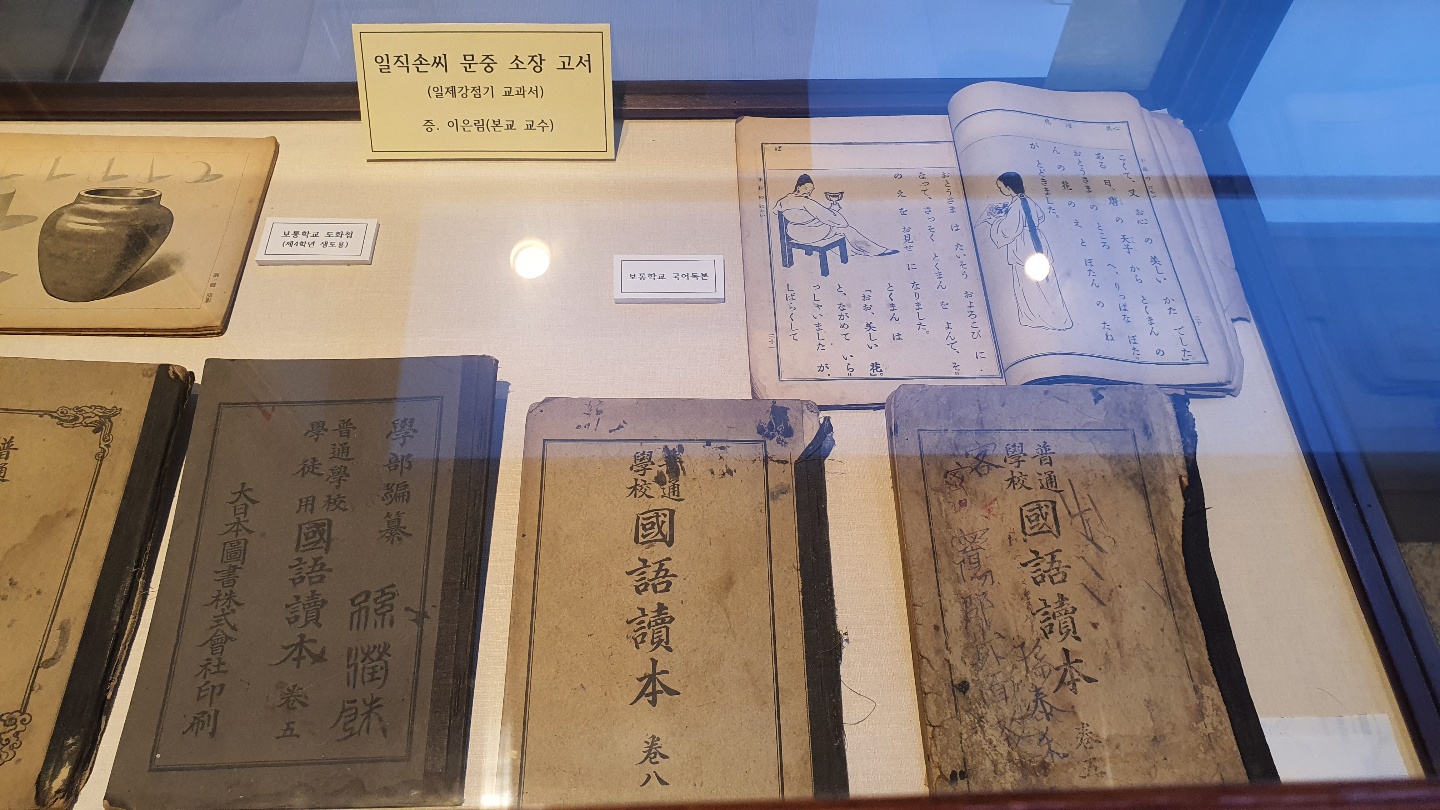 일직손씨 문중 소장 고서
(일제강점기 교과서)
증. 이은림(본교 교수)
보통학교 도화첩
(제4학년 생도용)
보통학교 국어독본
こくて、又 お心 の 美しい かた でした」
ある 日、唐 の 天子 から とくまん の
おとうさま の ところ へ、りっぱな ぼた
ん の 花 の え と ぼたん の たね
が とどきました。
おとうさま は たいそう およろこび に
なって、さっそく とくまん を よんで、そ
の え を お見せ に なりました。
とくまん は
「おお、美しい 花」
と、ながめて いら
っしゃいました が、
しばらくして
普通
學部編纂
普通學校
學徒用
國語讀本 卷五
大日本圖書株式會社印刷
普通
學校
國語讀本 卷八
普通
學校
國語讀本